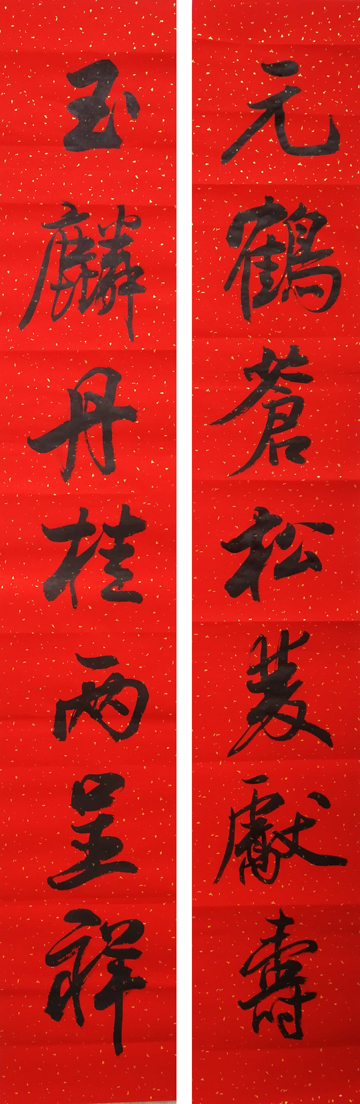 元鶴蒼松雙獻壽
玉麟丹桂兩呈祥